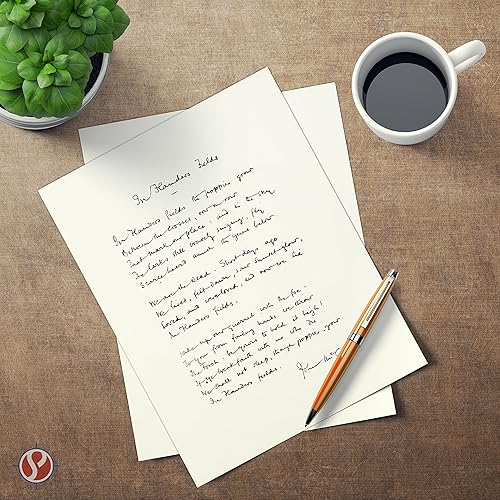 In Flanders Fields
In Flanders fields the poppies grow
Between the crosses, row on row
That mark our place, and in the sky
The larks still bravely singing, fly
Scarce heard amid the guns below.
We are the Dead. Short days ago
We lived, felt dawn, saw sunset glow,
Loved, and were loved, and now we lie
In Flanders fields.
Take up our quarrel with the foe:
To you from failing hands we throw
The torch be yours to hold it high!
If ye break faith with us who die
We shall not sleep, though poppies grow
In Flanders fields.
John